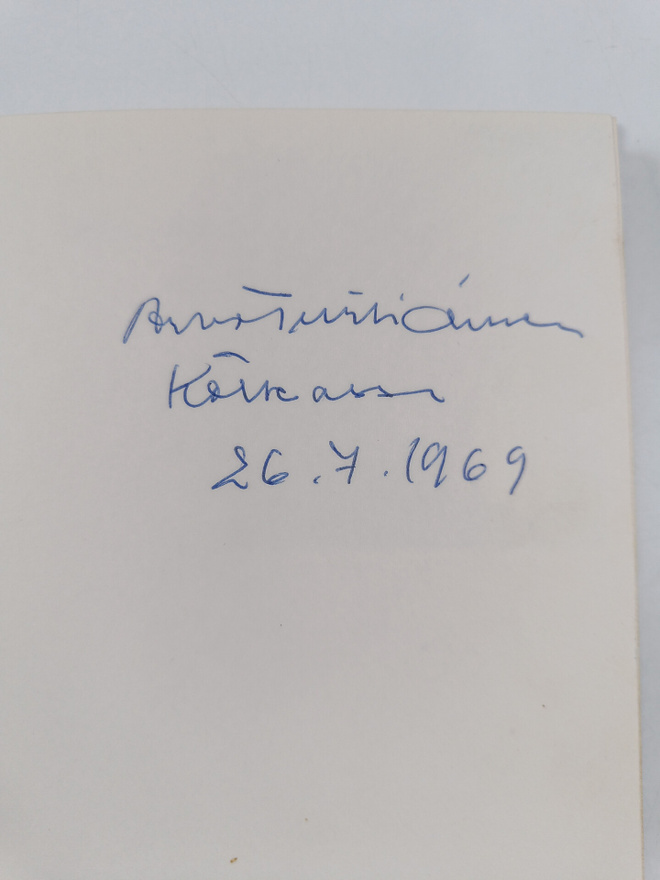 Arvo Turtiainen
Kotkassa
26.7.1969